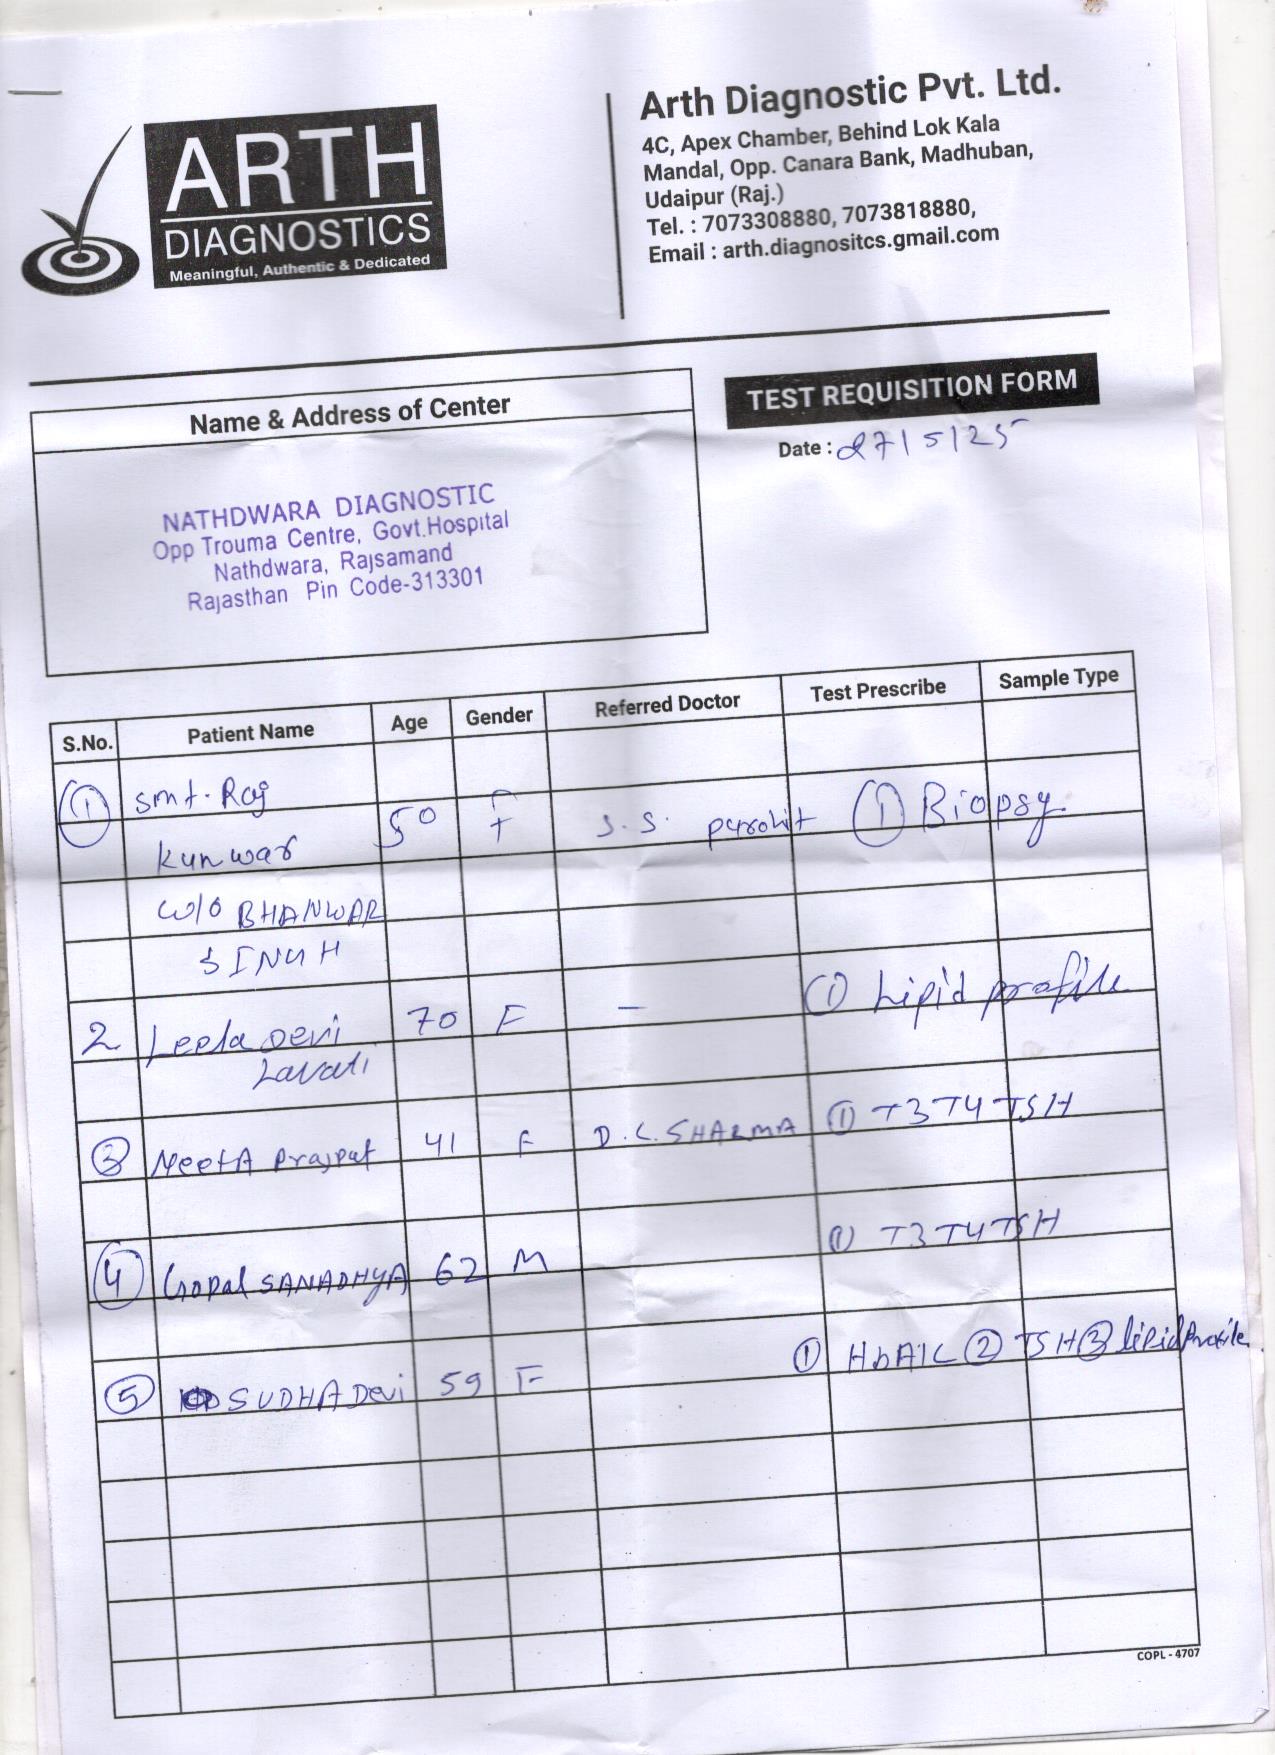 ARTH
DIAGNOSTICS
Meaningful, Authentic & Dedicated
Arth Diagnostic Pvt. Ltd.
4C, Apex Chamber, Behind Lok Kala
Mandal, Opp. Canara Bank, Madhuban,
Udaipur (Raj.)
Tel. : 7073308880, 7073818880,
Email : arth.diagnositcs.gmail.com
Name & Address of Center
NATHDWARA DIAGNOSTIC
Opp Trouma Centre, Govt.Hospital
Nathdwara, Rajsamand
Rajasthan Pin Code-313301
TEST REQUISITION FORM
Date : 27/5/25
S.No. Patient Name Age Gender Referred Doctor Test Prescribe Sample Type
① smt. Raj
Kunwar 50 F S. S. purohit ① Biopsy
W/O BHANWAR
SINGH
2 Leela Devi 70 F - ① Lipid profile
③ NeetA Prajpat 41 F D.C. SHARMA ① T3 T4 TSH
④ Gopal SANADHYA 62 M ① T3 T4 TSH
⑤ SUDHA Devi 59 F ① HbA1C ② TSH ③ lipid Profile
COPL - 4707